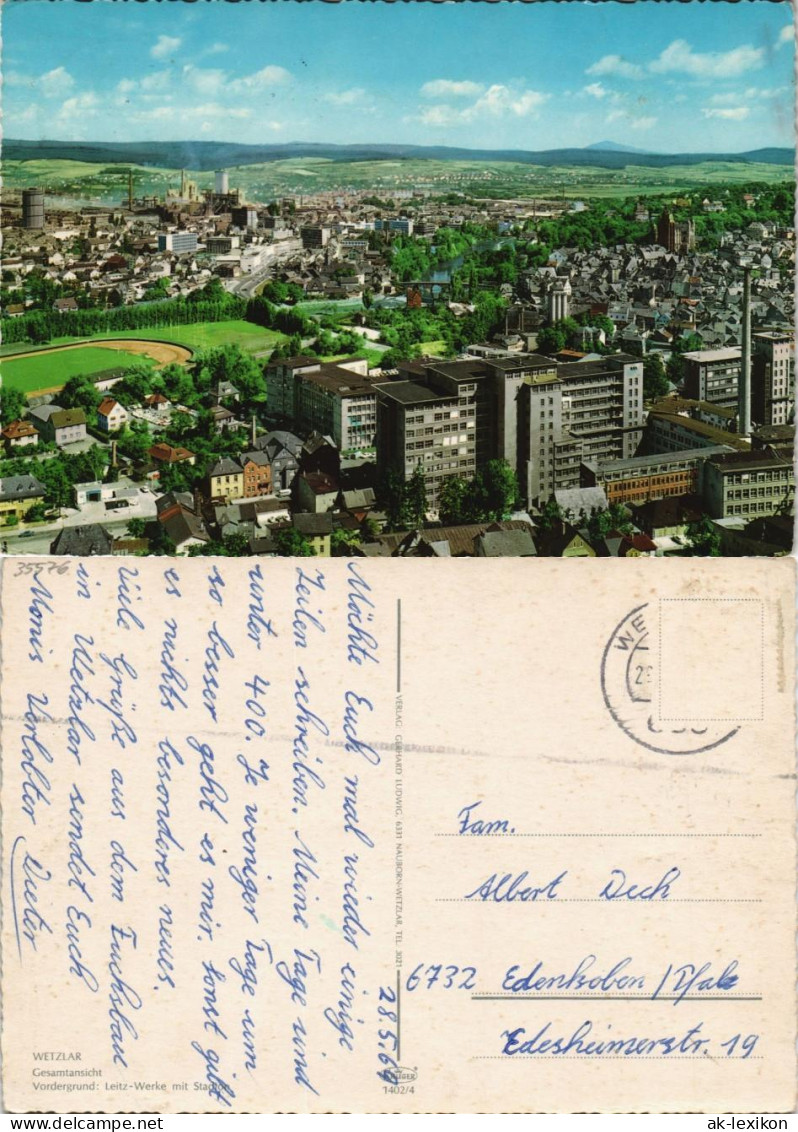 35576
28.5.67
Möchte Euch mal wieder einige
Zeilen schreiben. Meine Tage sind
unter 400. Je weniger Tage um
so besser geht es mir. sonst gibt
es nichts besonderes neues.
Viele Grüße aus dem Fuchsbau
in Wetzlar sendet Euch
Monis Verlobter Dieter
VERLAG GERHARD LUDWIG, 6331 NAUBORN-WETZLAR, TEL. 3021
WE
Fam.
Albert Dech
6732 Edenkoben/Pfalz
Edesheimerstr. 19
WETZLAR
Gesamtansicht
Vordergrund: Leitz-Werke mit Stadion
1402/4
ak-lexikon